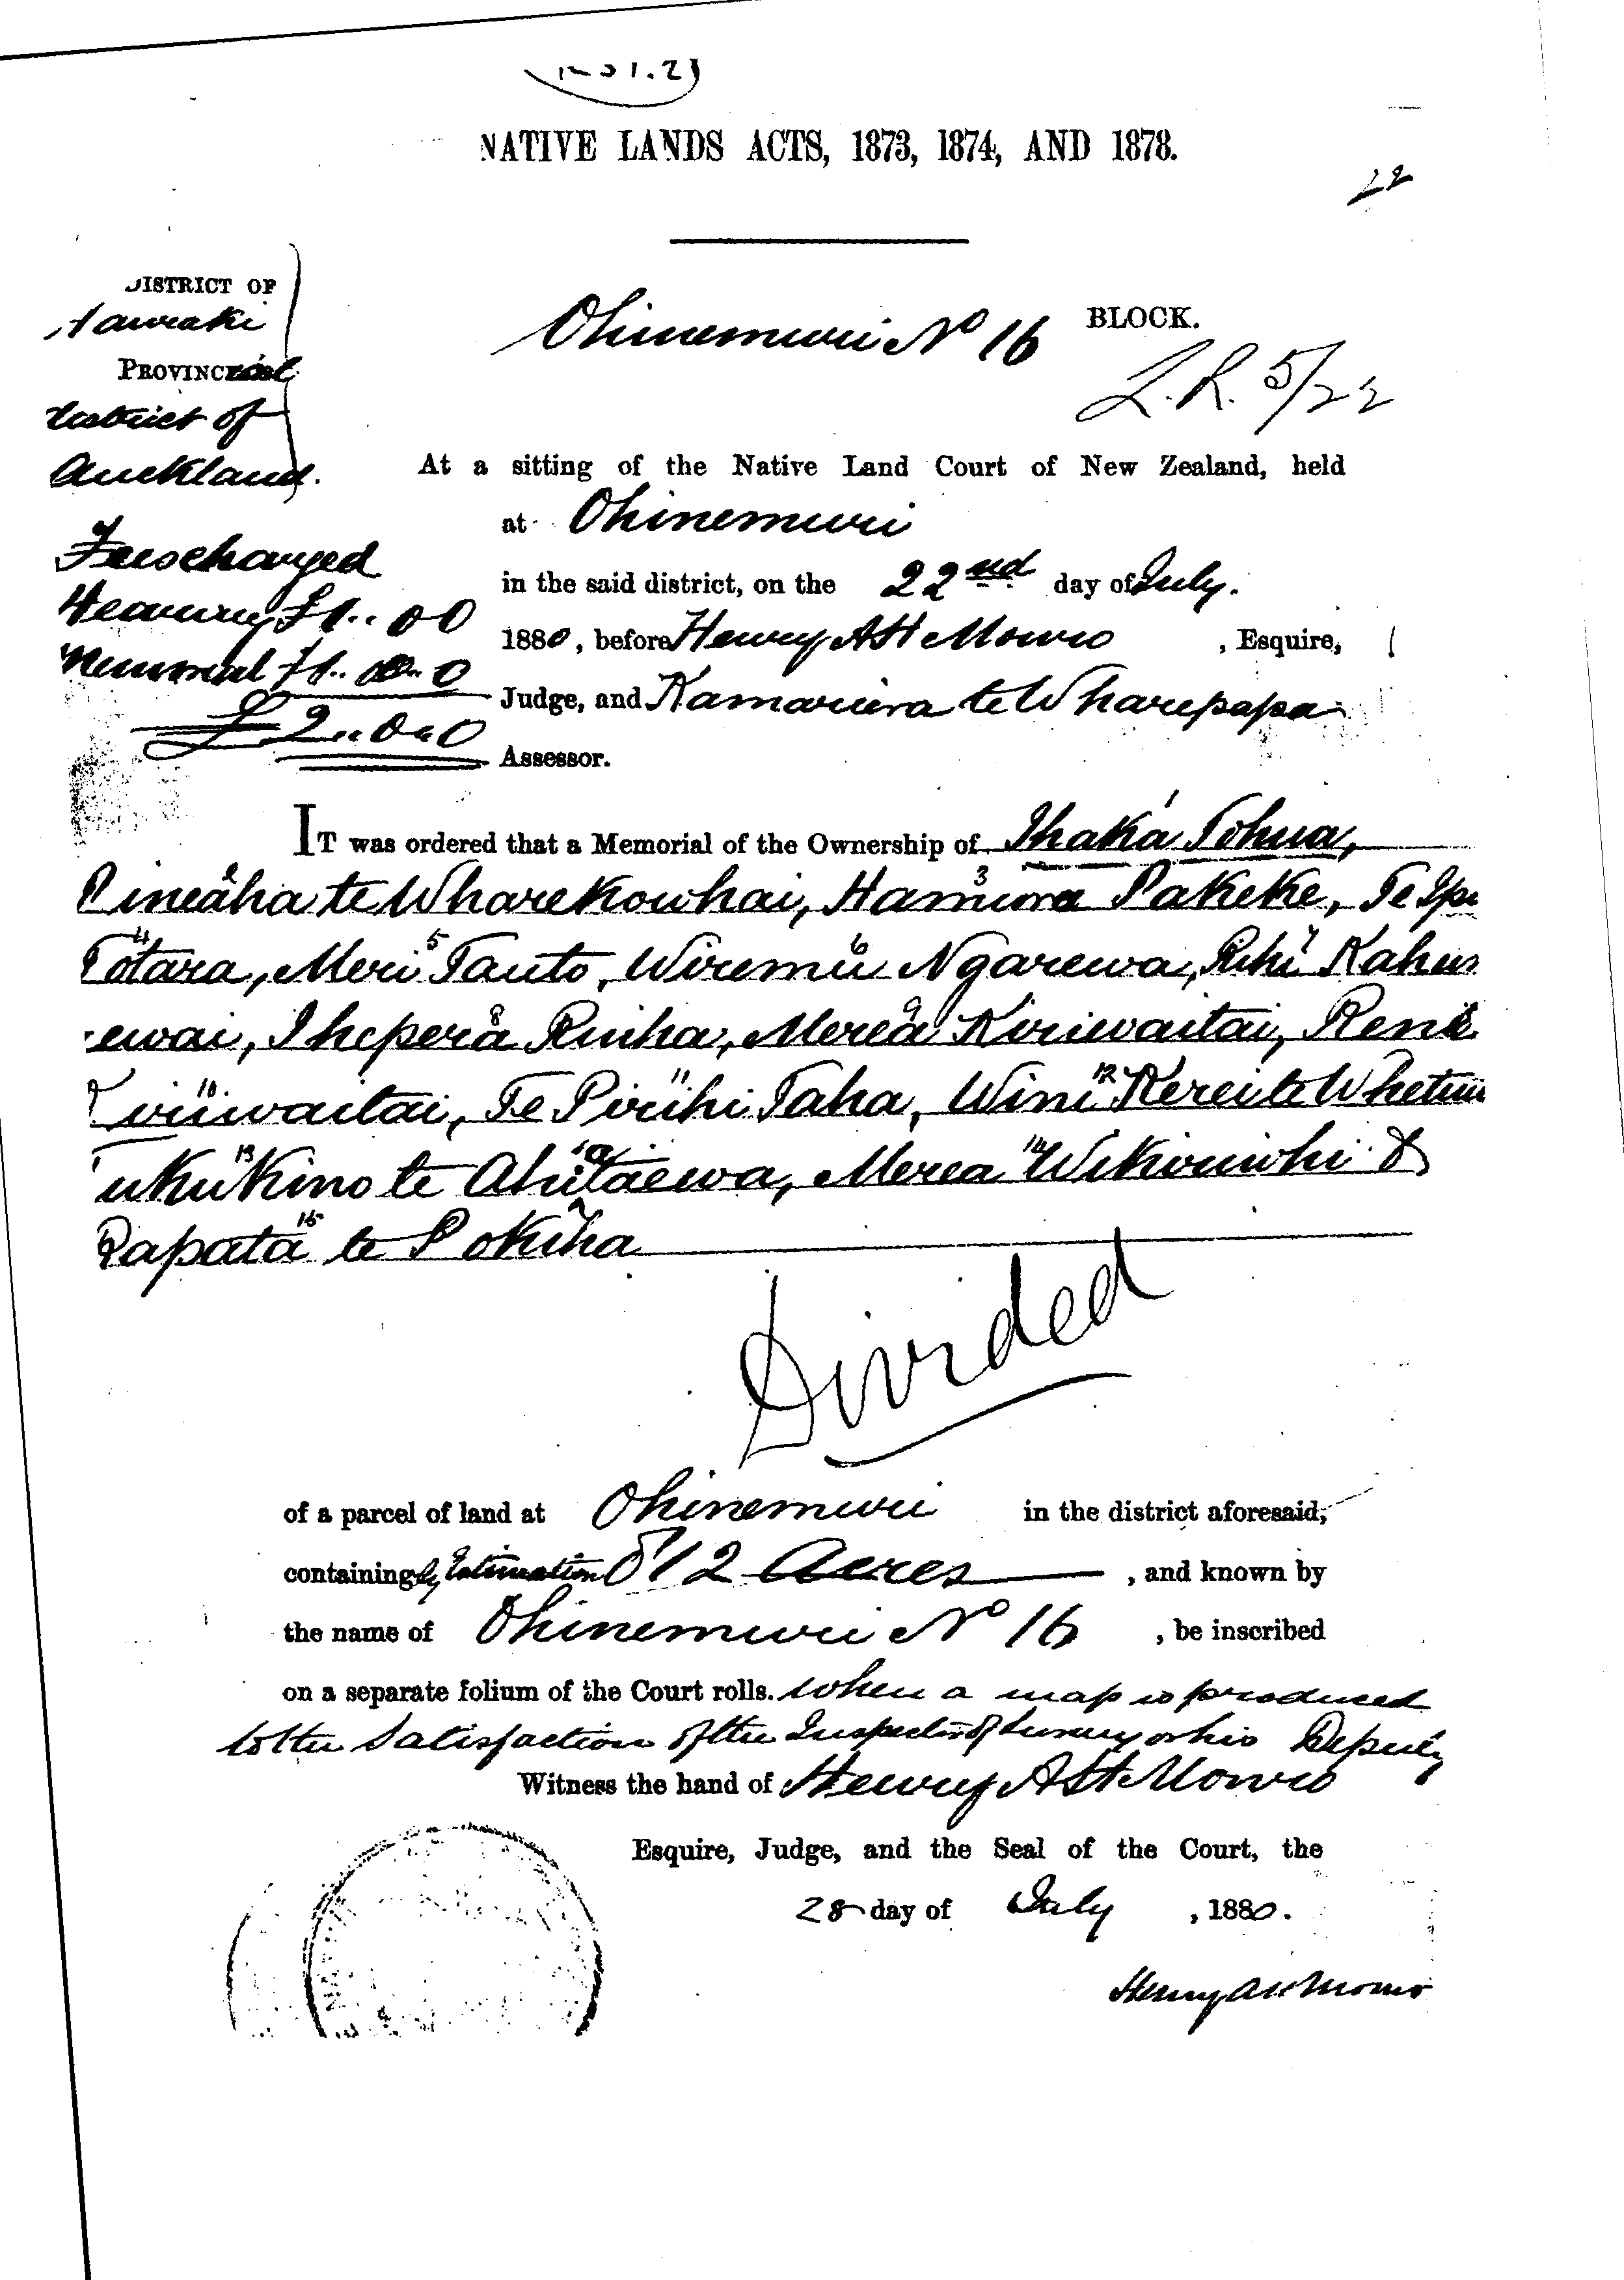 NATIVE LANDS ACTS, 1873, 1874, AND 1878.
22
DISTRICT OF
Hauraki
PROVINCial
District of
Auckland.
Ohinemuri No 16 BLOCK.
L.R. 5/22
Fees charged
Hearing £1.. 0 0
Memorial £1.. 0.. 0
£2.. 0.. 0
At a sitting of the Native Land Court of New Zealand, held
at Ohinemuri
in the said district, on the 22nd day of July.
1880, before Henry A H Monro, Esquire,
Judge, and Kamariera te Wharepapa
Assessor.
IT was ordered that a Memorial of the Ownership of Ihaka 1 Tohua,
Pineaha 2 te Wharekowhai, Hamiora 3 Pakeke, Te Ipu
Totara 4, Meri 5 Tauto, Wiremu 6 Ngarewa, Rihi 7 Kahur
ewai, Ihepera 8 Ruiha, Merea 9 Kiriwaitai, Rene
Kiriwaitai 10, Te Pirihi 11 Taha, Wini 12 Kerei te Whetuu
ukukino 13 te Ahutaewa, Merea 14 Wikiriwhi &
Rapata 15 te Pokiha
Divided
of a parcel of land at Ohinemuri in the district aforesaid,
containing by Estimation 812 Acres, and known by
the name of Ohinemuri No 16, be inscribed
on a separate folium of the Court rolls. When a map is produced
to the Satisfaction of the Inspector of Survey or his Deputy
Witness the hand of Henry A H Monro
Esquire, Judge, and the Seal of the Court, the
28 day of July, 1880.
Henry A H Monro